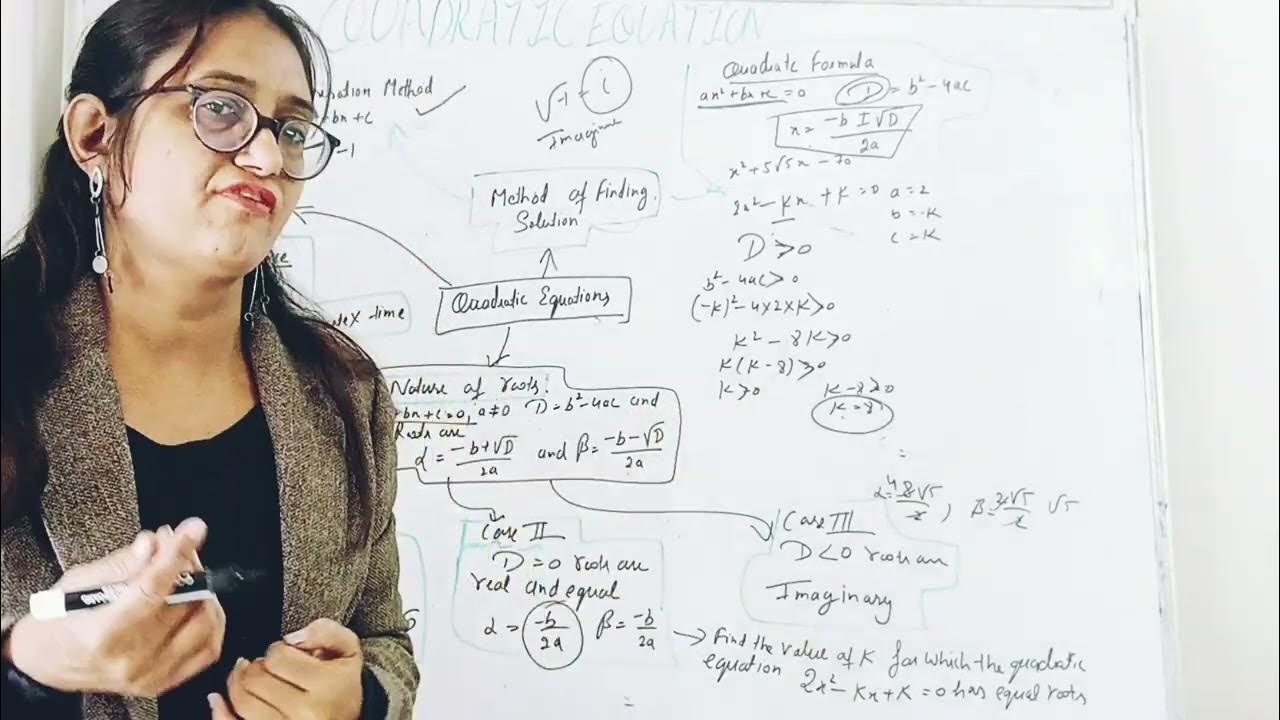 QUADRATIC EQUATION
Method
bx + c
-1
√-1 = i
Quadratic Formula
ax² + bx + c = 0 D = b² - 4ac
x = -b ± √D / 2a
x² + 5√5x - 70
2x² - Kx + K = 0 a = 2
b = -K
c = K
D ≥ 0
b² - 4ac ≥ 0
(-K)² - 4×2×K ≥ 0
K² - 8K ≥ 0
K(K - 8) ≥ 0
K ≥ 0 K - 8 ≥ 0
K = 8
Method of Finding
Solution
Quadratic Equations
time
Nature of roots:
+ bx + c = 0, a ≠ 0 D = b² - 4ac and
Roots are
α = -b + √D / 2a and β = -b - √D / 2a
Case II
D = 0 roots are
real and equal
α = -b / 2a β = -b / 2a
Case III
D < 0 roots are
Imaginary
√5
→ Find the value of K for which the quadratic
equation 2x² - Kx + K = 0 has equal roots